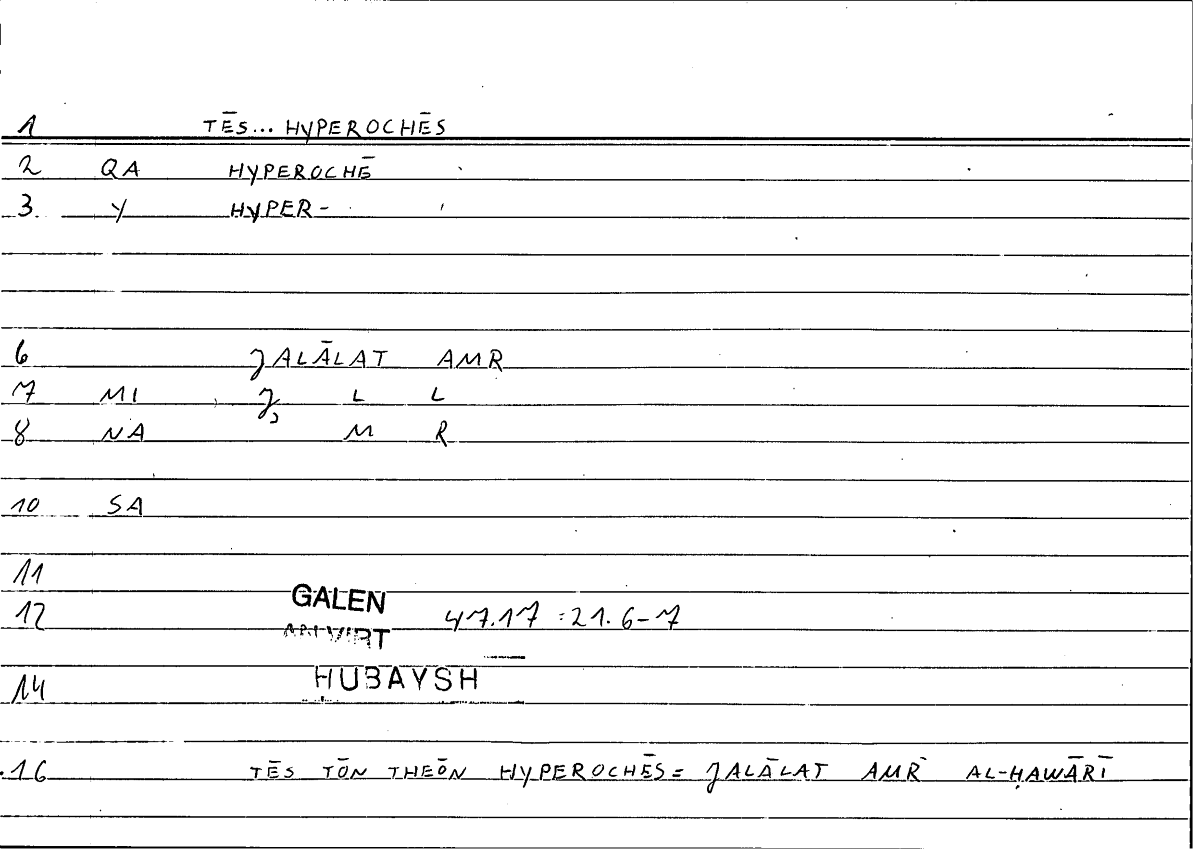 1 TĒS... HYPEROCHĒS
2 QA HYPEROCHĒ
3. Y HYPER-
6 JALĀLAT AMR
7 MI J L L
8 NA M R
10 SA
11
12 GALEN 47.17 = 21.6-7
AN VIRT
14 HUBAYSH
16 TĒS TŌN THEŌN HYPEROCHĒS = JALĀLAT AMR AL-ḤAWĀRĪ